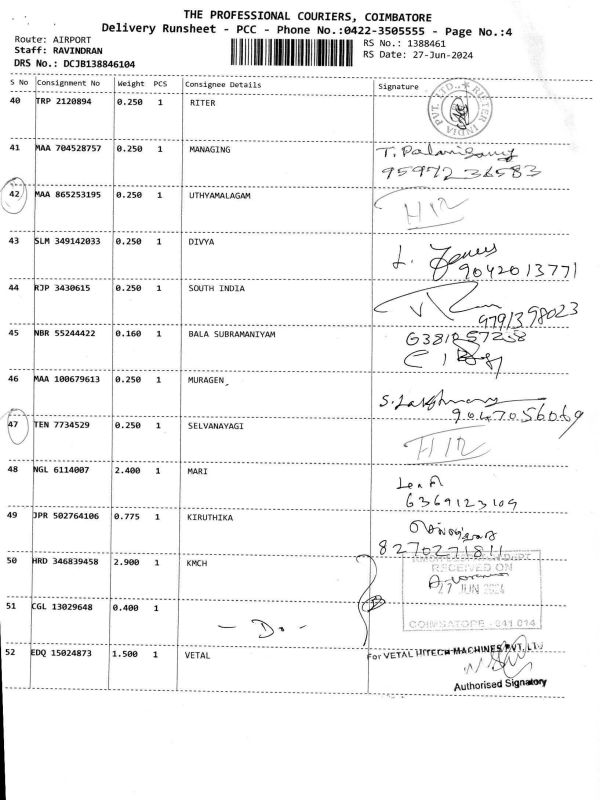 THE PROFESSIONAL COURIERS, COIMBATORE
Delivery Runsheet - PCC - Phone No.:0422-3505555 - Page No.:4
Route: AIRPORT
RS No.: 1388461
Staff: RAVINDRAN
RS Date: 27-Jun-2024
DRS No.: DCJB138846104
S No Consignment No Weight PCS Consignee Details Signature
40 TRP 2120894 0.250 1 RITER
RITER INDIA PVT. LTD.
41 MAA 704528757 0.250 1 MANAGING T. Palanisamy
9597236583
42 MAA 865253195 0.250 1 UTHYAMALAGAM HIR
43 SLM 349142033 0.250 1 DIVYA L.
9042013771
44 RJP 3430615 0.250 1 SOUTH INDIA
9791398023
45 NBR 55244422 0.160 1 BALA SUBRAMANIYAM
46 MAA 100679613 0.250 1 MURAGEN S. Lakshmanan
9047056069
47 TEN 7734529 0.250 1 SELVANAYAGI HIR
48 NGL 6114007 2.400 1 MARI
6369123109
49 JPR 502764106 0.775 1 KIRUTHIKA
8270271811
50 HRD 346839458 2.900 1 KMCH
RECEIVED ON
27 JUN 2024
51 CGL 13029648 0.400 1 - Do -
COIMBATORE - 641 014
52 EDQ 15024873 1.500 1 VETAL For VETAL HITECH MACHINES PVT. LTD
Authorised Signatory